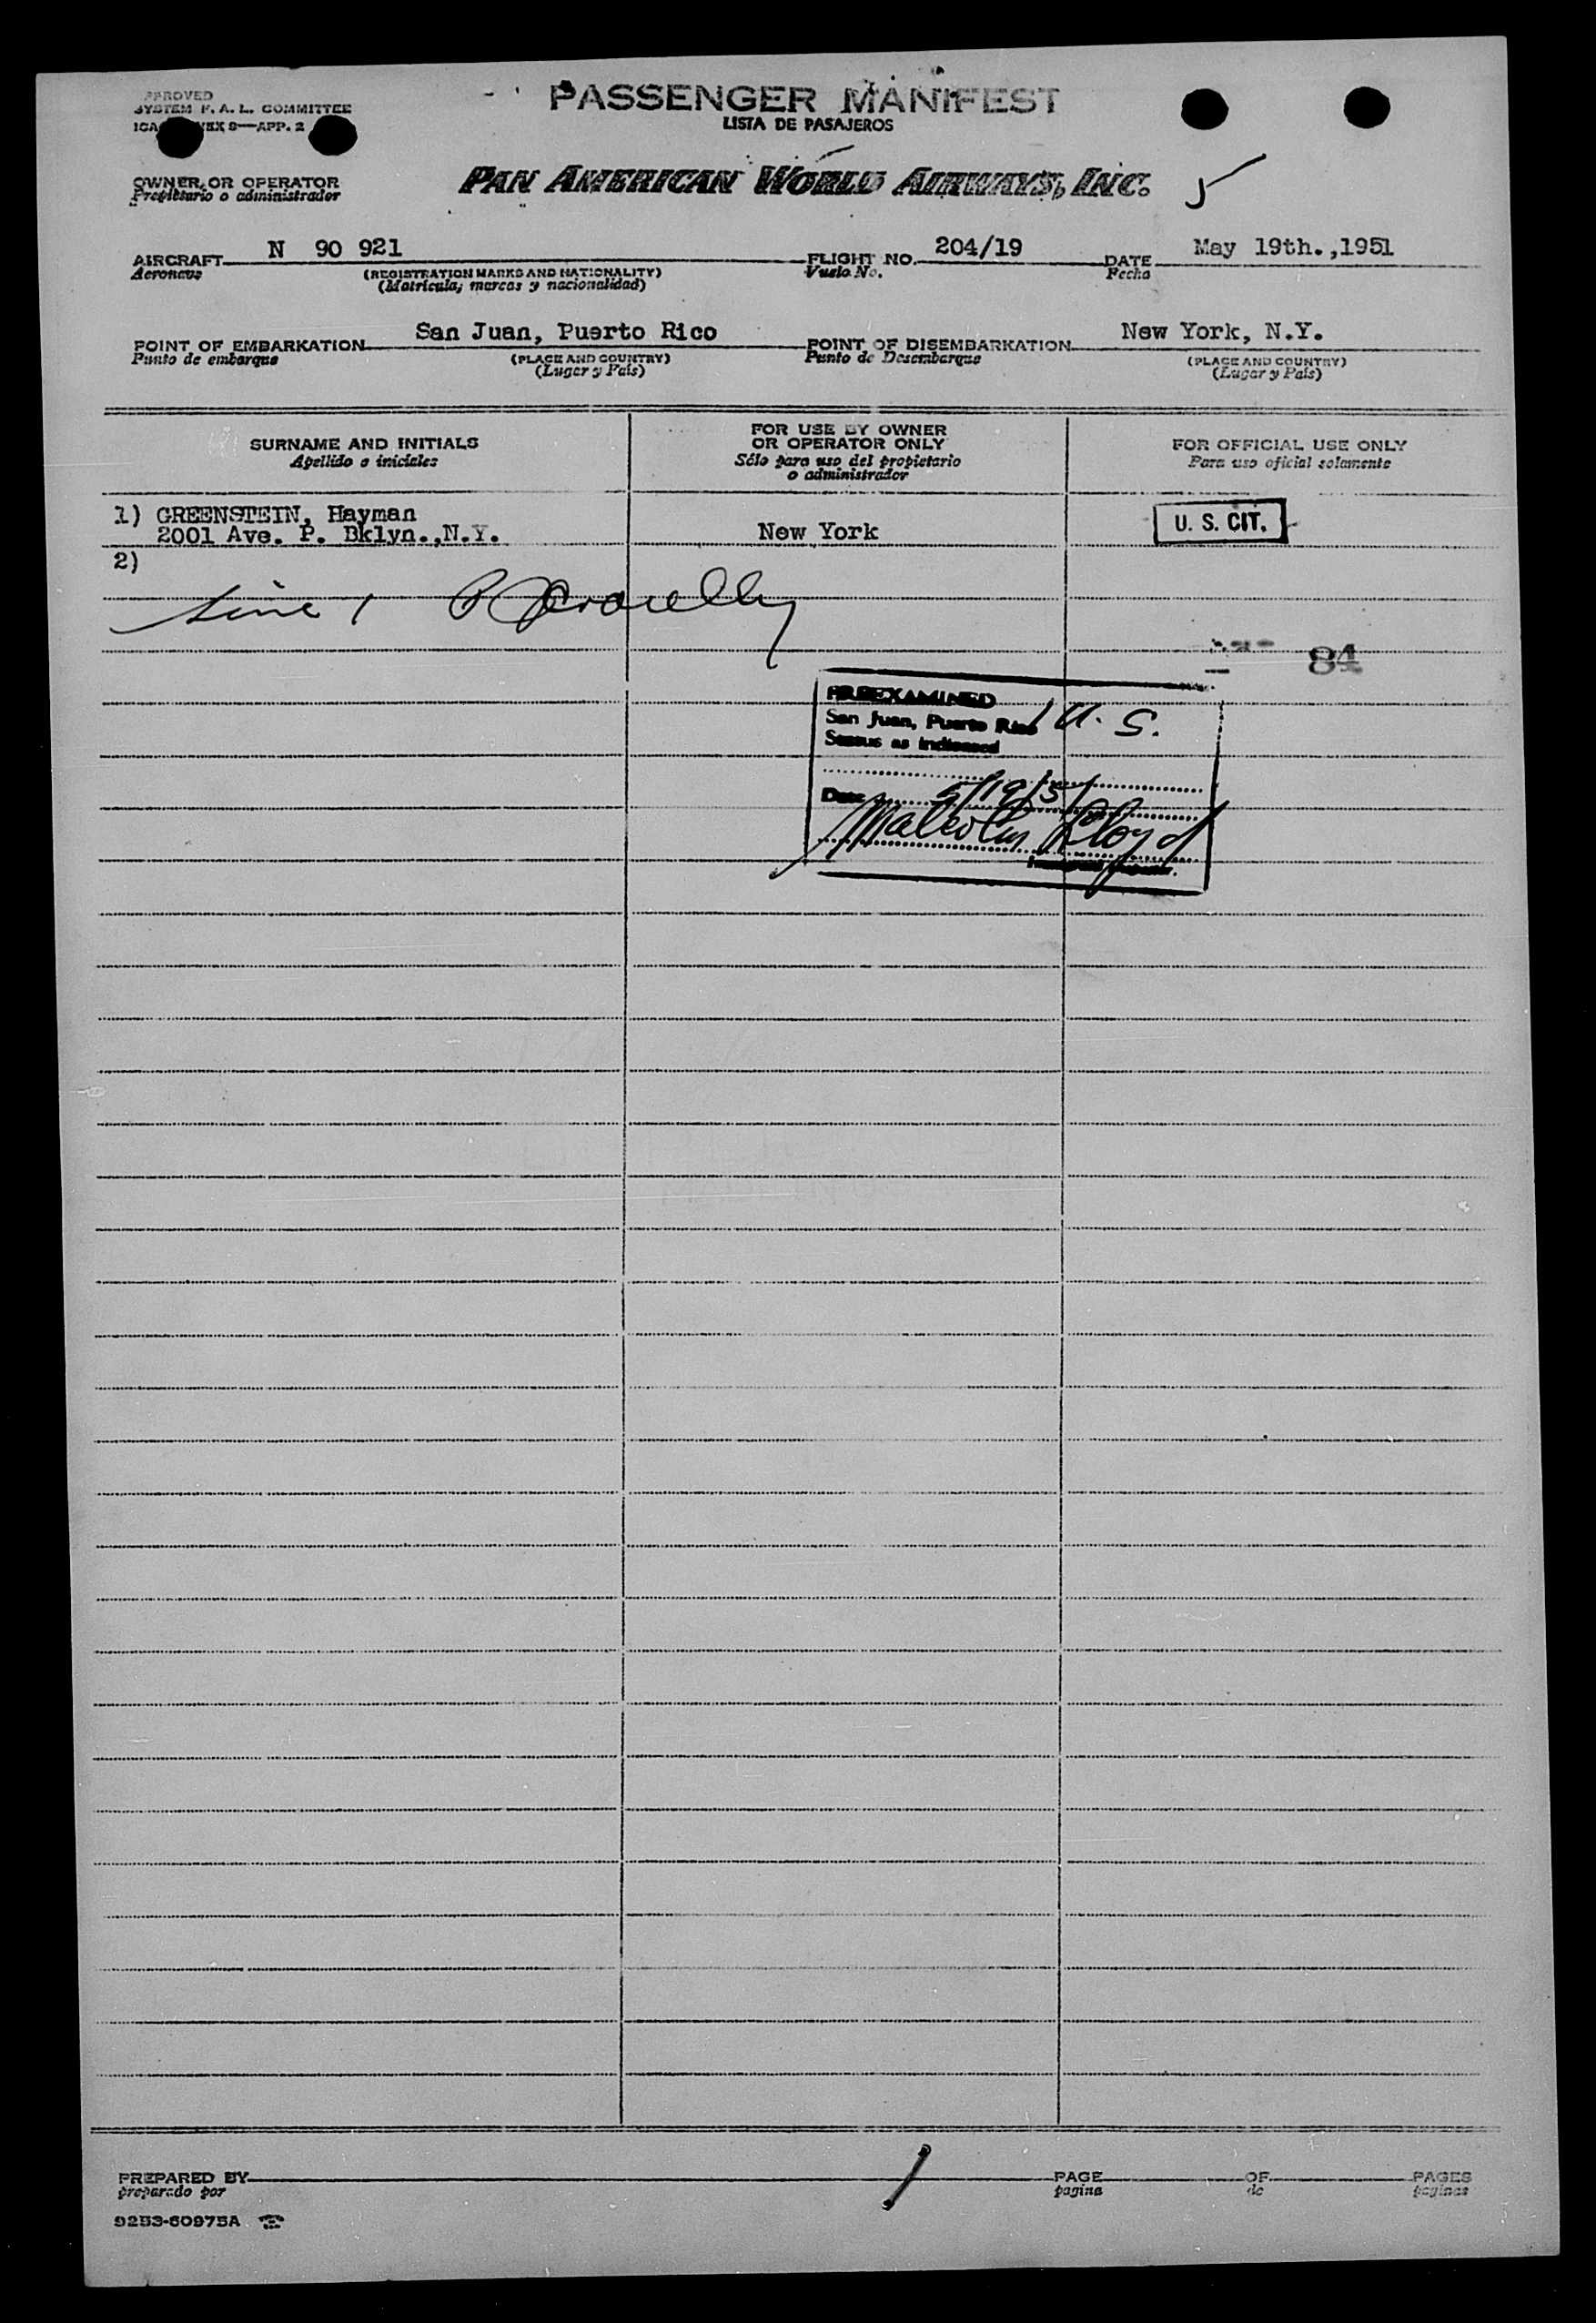 APPROVED
SYSTEM F. A. L. COMMITTEE
APP. 2
PASSENGER MANIFEST
LISTA DE PASAJEROS
OWNER OR OPERATOR
Propietario o administrador
PAN AMERICAN WORLD AIRWAYS, INC.
AIRCRAFT N 90 921 FLIGHT NO. 204/19 DATE May 19th.,1951
Aeronave (REGISTRATION MARKS AND NATIONALITY) Vuelo No. Fecha
(Matrícula, marcas y nacionalidad)
POINT OF EMBARKATION San Juan, Puerto Rico POINT OF DISEMBARKATION New York, N.Y.
Punto de embarque (PLACE AND COUNTRY) Punto de Desembarque (PLACE AND COUNTRY)
(Lugar y País) (Lugar y País)
SURNAME AND INITIALS
Apellido o iniciales
FOR USE BY OWNER
OR OPERATOR ONLY
Sólo para uso del propietario
o administrador
FOR OFFICIAL USE ONLY
Para uso oficial solamente
1) GREENSTEIN, Hayman
2001 Ave. P. Bklyn.,N.Y. New York U. S. CIT.
2)
Line 1
84
PREEXAMINED
San Juan, Puerto Rico 1 U. S.
Status as Indicated
Date 5/19/51
Malcolm Lloyd
PREPARED BY PAGE OF PAGES
preparado por pagina de paginas
9253-60975A